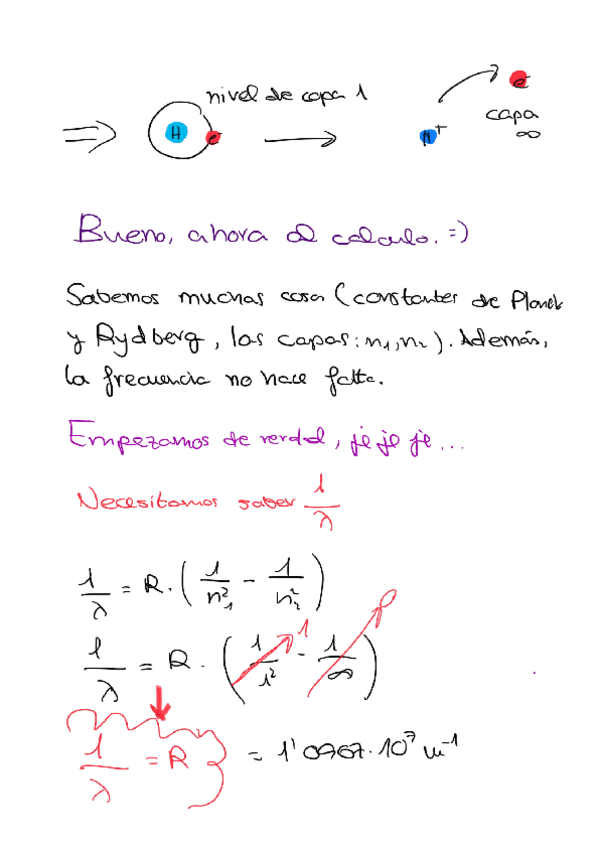 nivel de capa 1
H e e
H+ capa
∞
Bueno, ahora al calculo. =)
Sabemos muchas cosas (constantes de Planck
y Rydberg, las capas: n₁, n₂). Además,
la frecuencia no hace falta.
Empezamos de verdad, je je je...
Necesitamos saber 1/λ
1/λ = R · (1/n₁² - 1/n₂²)
1/λ = R · (1/1² - 1/∞) 1 0
1/λ = R = 1'0967·10⁷ m⁻¹